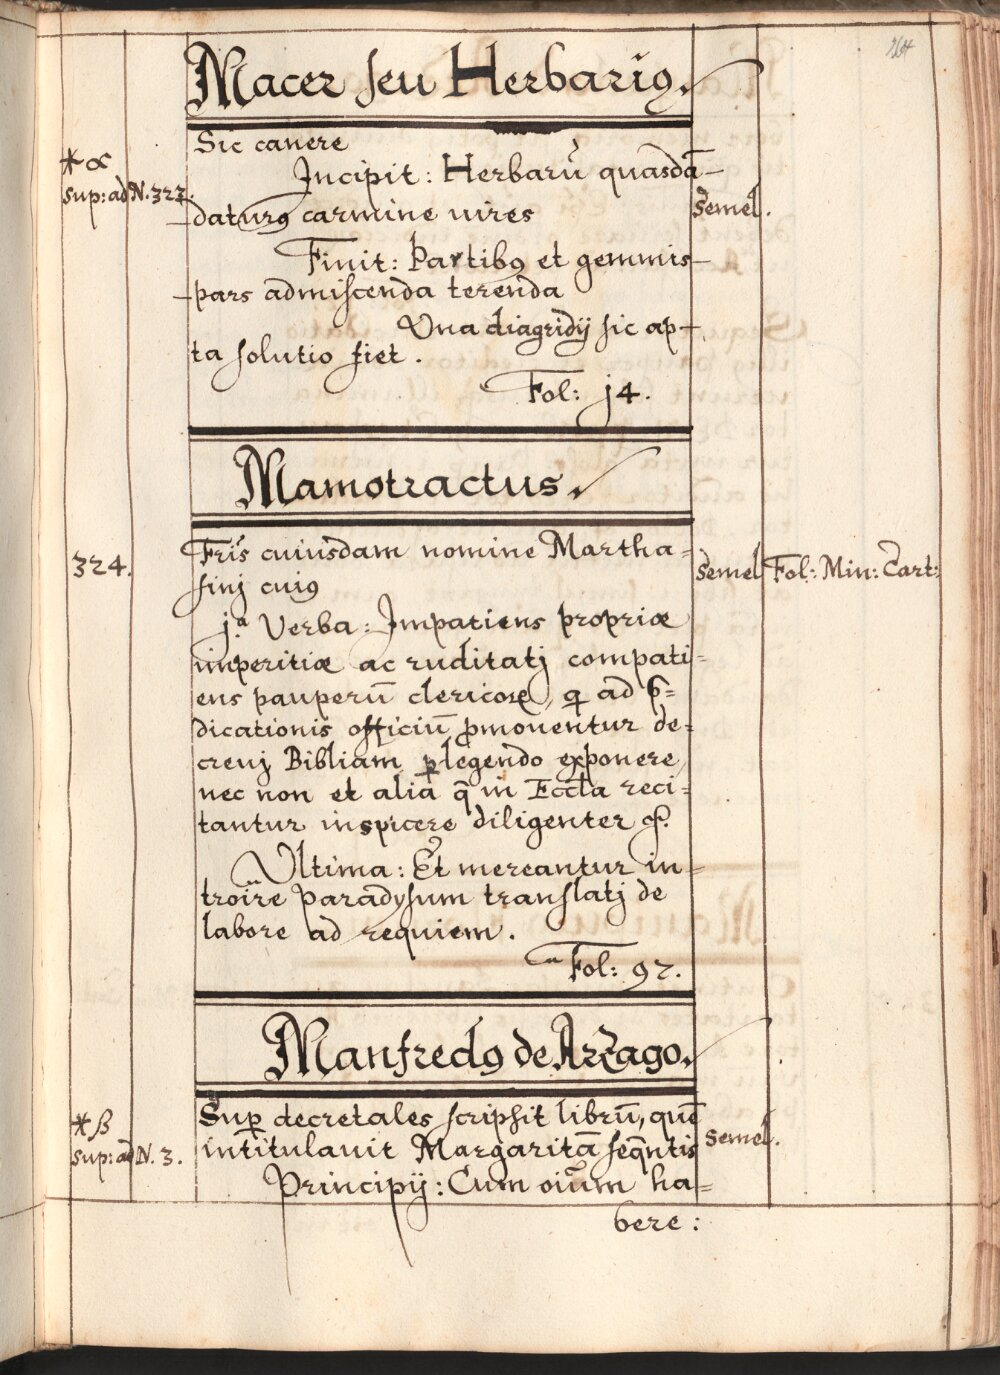 264
Macer seu Herbariꝰ.
Sic canere
*α
Incipit: Herbarū quasdā
sup: ad N. 323.
daturꝰ carmine uires
semel.
Finit: Partibꝰ et gemmis
pars admiscenda terenda
Una diagridij sic ap-
ta solutio fiet.
Fol: j4.
Mamotractus.
324.
Fris cuiusdam nomine Martha=
semel
Fol: Min: Cart:
sinj cuiꝰ
j.a Verba: Impatiens propriæ
imperitiæ ac ruditatj compati=
ens pauperū clericoꝝ, qi ad p̄=
dicationis officiū ꝓmouentur de=
creuj Bibliam ꝑlegendo exponere,
nec non et alia q̄ in Eccla reci=
tantur inspicere diligenter &.
Ultima: Et mereantur in=
troire Paradysum translatj de
labore ad requiem.
Fol: 97.
Manfredꝰ de Arzago.
*β
Suꝑ decretales scripsit librū, quē
sup: ad N. 3.
intitulauit Margaritā seqn̄tis
semel.
Principij: Cum oiūm ha=
bere: